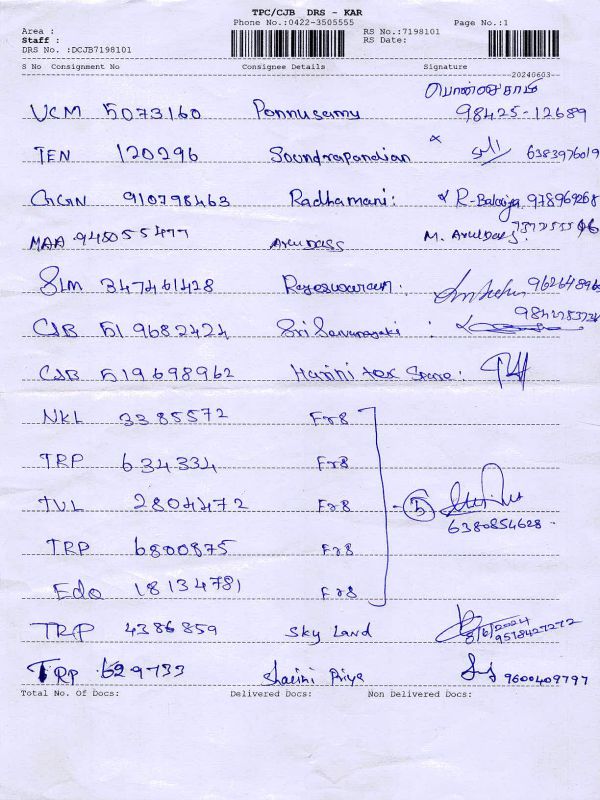 TPC/CJB DRS - KAR
Phone No.:0422-3505555 Page No.:1
Area : RS No.:7198101
Staff : RS Date:
DRS No. :DCJB7198101
S No Consignment No Consignee Details Signature
20240603
பொன்னுசாமி
VCM 5073160 Ponnusamy 98425-12689
TEN 120296 Soundrapandian 6383976019
GGN 910798463 Radhamani: R-Balaji 978969268
MAA 945055477 Aruldass M. Aruldass
SLM 347461428 Rajeswaran: 962648963
CJB 519682424 Sri Saravanasakti :
CJB 519698962 Harini tex Spare:
NKL 3385572 Fr8
TRP 634334 Fr8
TVL 2804472 Fr8 5
6380854628
TRP 6800875 Fr8
Edo 18134781 Fr8
TRP 4386859 Sky Land 8/6/2024
9518427272
TRP 629733 Sharini Priya 9600409797
Total No. Of Docs: Delivered Docs: Non Delivered Docs: